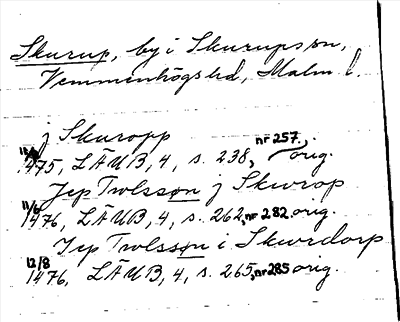 Skurup, by i Skurups sn,
Vemmenhögs hd, Malm. l.
j Skuropp
1475, LÄUB, 4, s. 238, nr 257, orig.
Jep Trolsszøn j Skurop
11/6 1476, LÄUB, 4, s. 262, nr 282 orig.
Jep Trolsszøn i Skurdorp
12/8 1476, LÄUB, 4, s. 265, nr 285 orig.